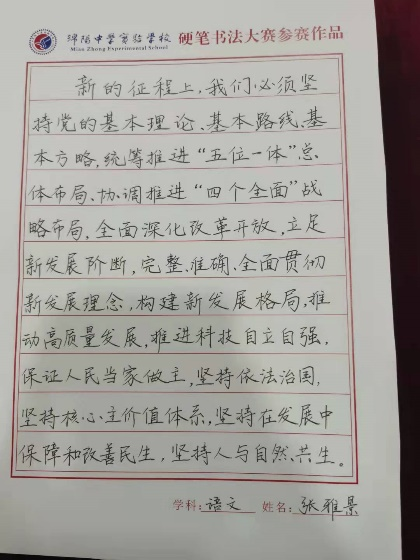 绵阳中学实验学校 硬笔书法大赛参赛作品
Mian Zhong Experimental School
新的征程上,我们必须坚
持党的基本理论、基本路线、基
本方略,统筹推进“五位一体”总
体布局、协调推进“四个全面”战
略布局,全面深化改革开放,立足
新发展阶断,完整、准确、全面贯彻
新发展理念,构建新发展格局,推
动高质量发展,推进科技自立自强,
保证人民当家做主,坚持依法治国,
坚持核心主价值体系,坚持在发展中
保障和改善民生,坚持人与自然共生。
学科:语文 姓名:张雅景